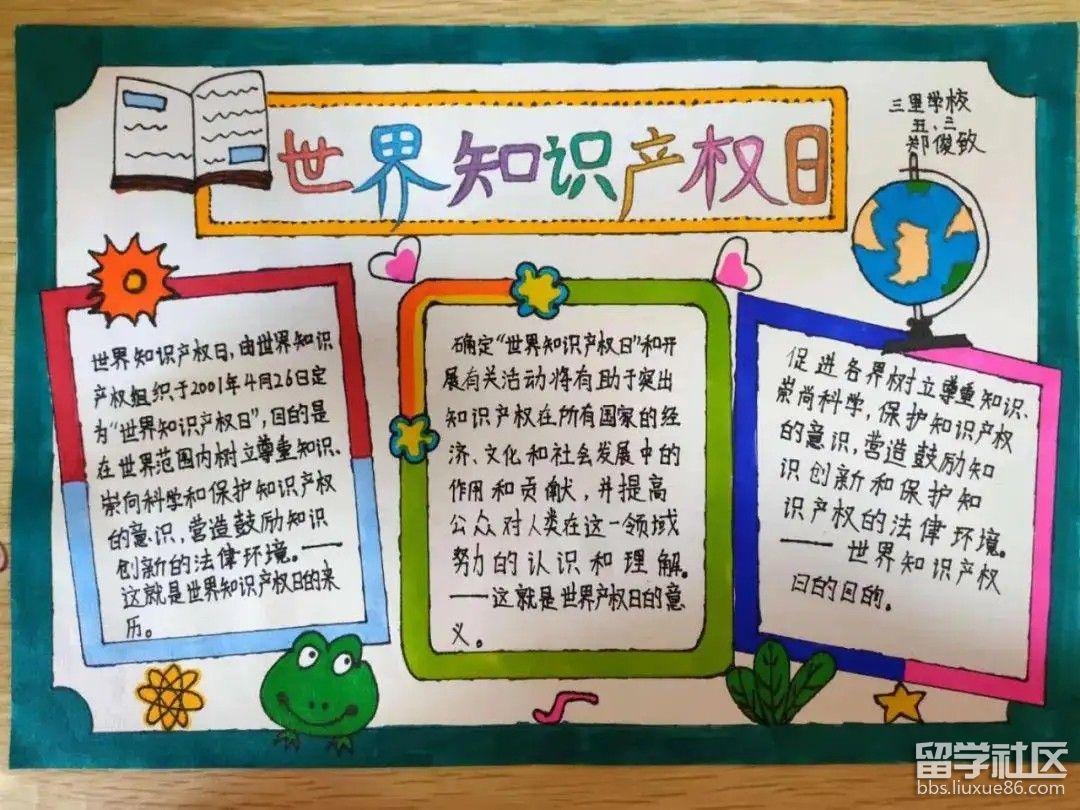 世界知识产权日
三里学校
五、二
郑俊致
世界知识产权日,由世界知识
产权组织于2001年4月26日定
为“世界知识产权日”,目的是
在世界范围内树立尊重知识、
崇尚科学和保护知识产权
的意识,营造鼓励知识
创新的法律环境。——
这就是世界知识产权日的来
历。
确定“世界知识产权日”和开
展有关活动将有助于突出
知识产权在所有国家的经
济、文化和社会发展中的
作用和贡献,并提高
公众对人类在这一领域
努力的认识和理解。
——这就是世界产权日的意
义。
促进各界树立尊重知识、
崇尚科学,保护知识产权
的意识,营造鼓励知
识创新和保护知
识产权的法律环境。
—— 世界知识产权
日的目的。
留学社区
bbs.liuxue86.com